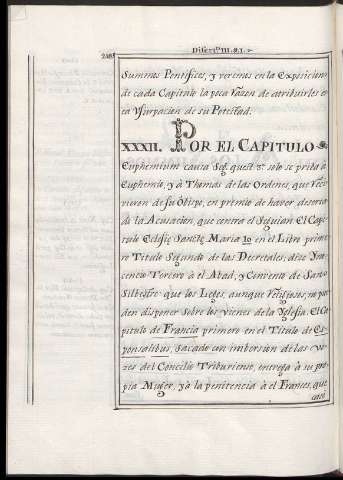 248
Disert.ⁿ III. §. I. 2.
Summos Pontifices, y veremos en la Exposicion
de cada Capitulo la poca razon de atribuirles es-
ta Vsurpacion de su Potestad.
XXXII. POR EL CAPITULO
Euphemium causa Seg. quest. 3ª solo se priba à
Euphemio, y à Thomas de las Ordenes, que reci-
vieron de su Obispo, en premio de haver desisti
de la Acusacion, que contra el seguian. El Capi-
tulo Eclesię Sanctę Marię 10 en el Libro prime-
ro Titulo Segundo de las Decretales, dice Ino-
cencio Tercero à el Abad, y Convento de San
Silbestre que los Legos, aunque religiosos, no pue-
den disponer sobre los vienes de la Yglesia. El Ca-
pitulo de Francia primero en el Titulo de Es-
ponsalibus, sacado con imbersion de las vo-
zes del Concilio Triburiense, entrega à su pro-
pia Muger, y à la penitencia à el Frances, que
casò